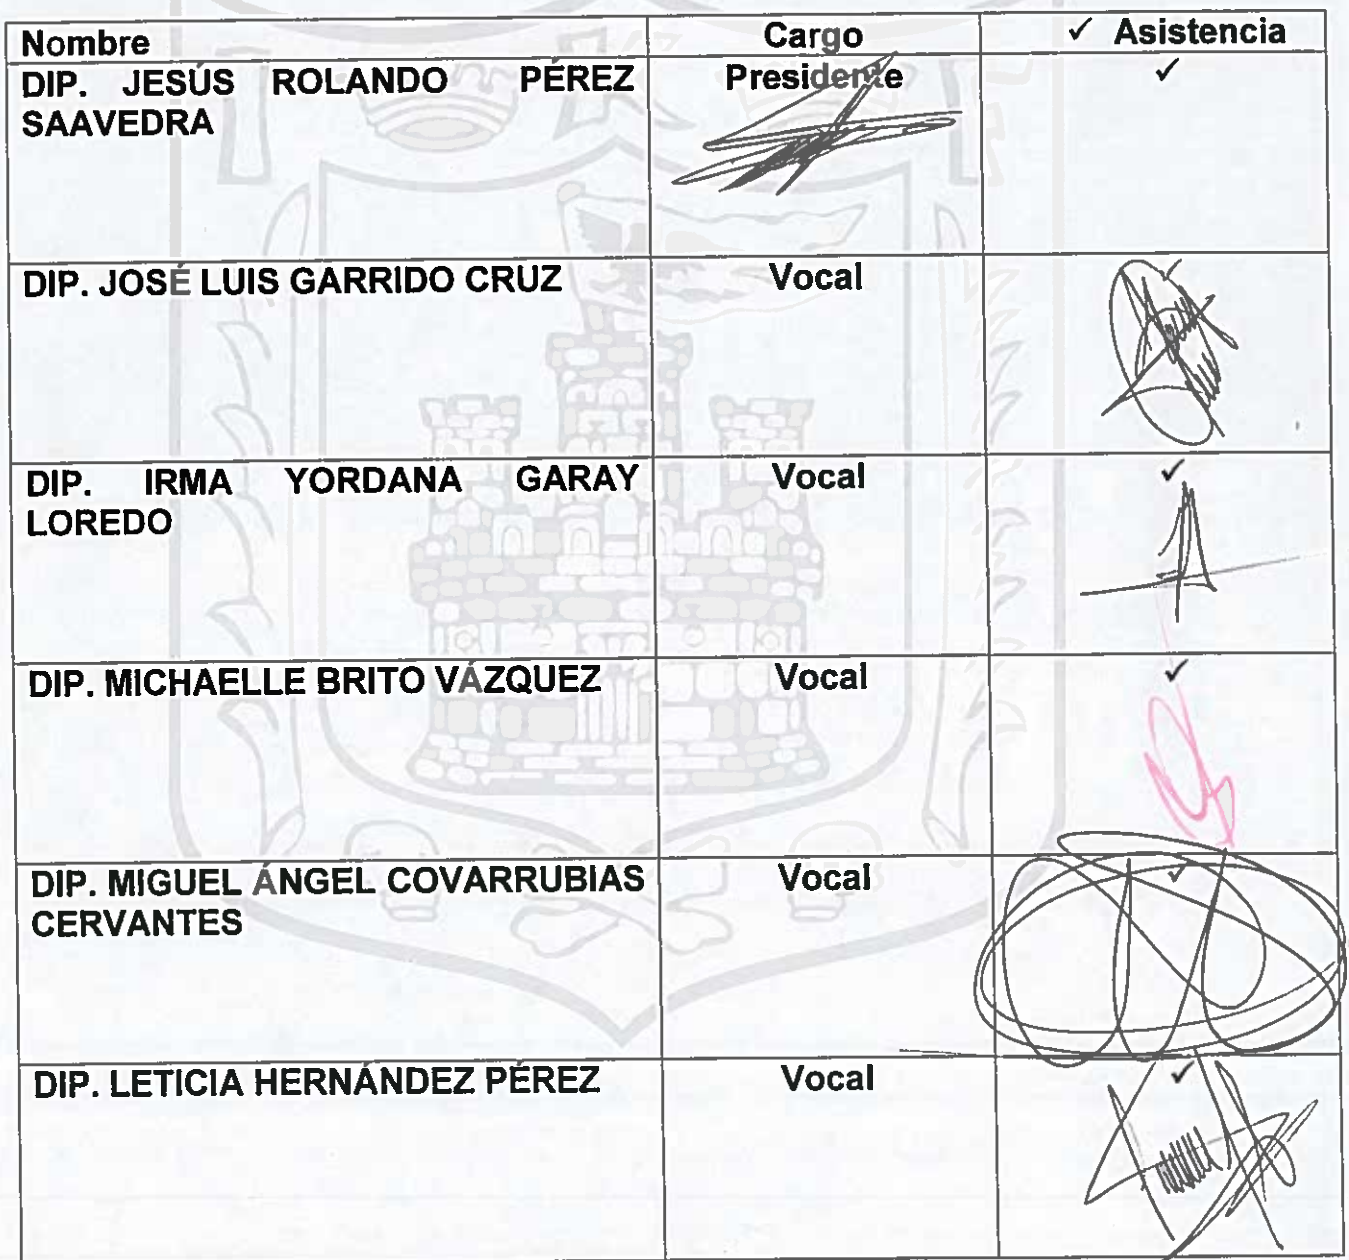 Nombre Cargo ✓ Asistencia
DIP. JESÚS ROLANDO PÉREZ Presidente ✓
SAAVEDRA
DIP. JOSÉ LUIS GARRIDO CRUZ Vocal ✓
DIP. IRMA YORDANA GARAY Vocal ✓
LOREDO
DIP. MICHAELLE BRITO VÁZQUEZ Vocal ✓
DIP. MIGUEL ÁNGEL COVARRUBIAS Vocal ✓
CERVANTES
DIP. LETICIA HERNÁNDEZ PÉREZ Vocal ✓